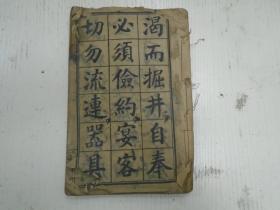 渴而掘井自奉
必須儉約宴客
切勿流連器具